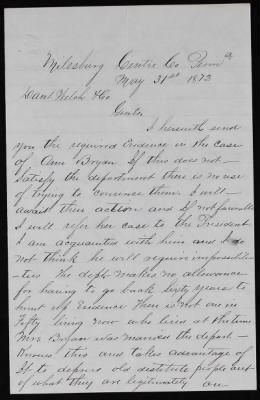 Milesburg Centre Co Penna
May 31st 1873
Danl Welch & Co
Gents.
I herewith send
you the required Evidence in the case
of Ann Bryan If this does not
satisfy the department there is no use
of trying to convince them. I will
await their action and If not favorable
I will refer her case to the President
I am acquainted with him and I do
not think he will require impossibili
-ties The dept makes no allowance
for having to go back Sixty years to
hunt Up Evidence There is not one in
Fifty living now who lived at the time
Mrs Bryan was married the depart-
Knows this and takes advantage of
It to defraud old destitute people out
of what they are legitimately